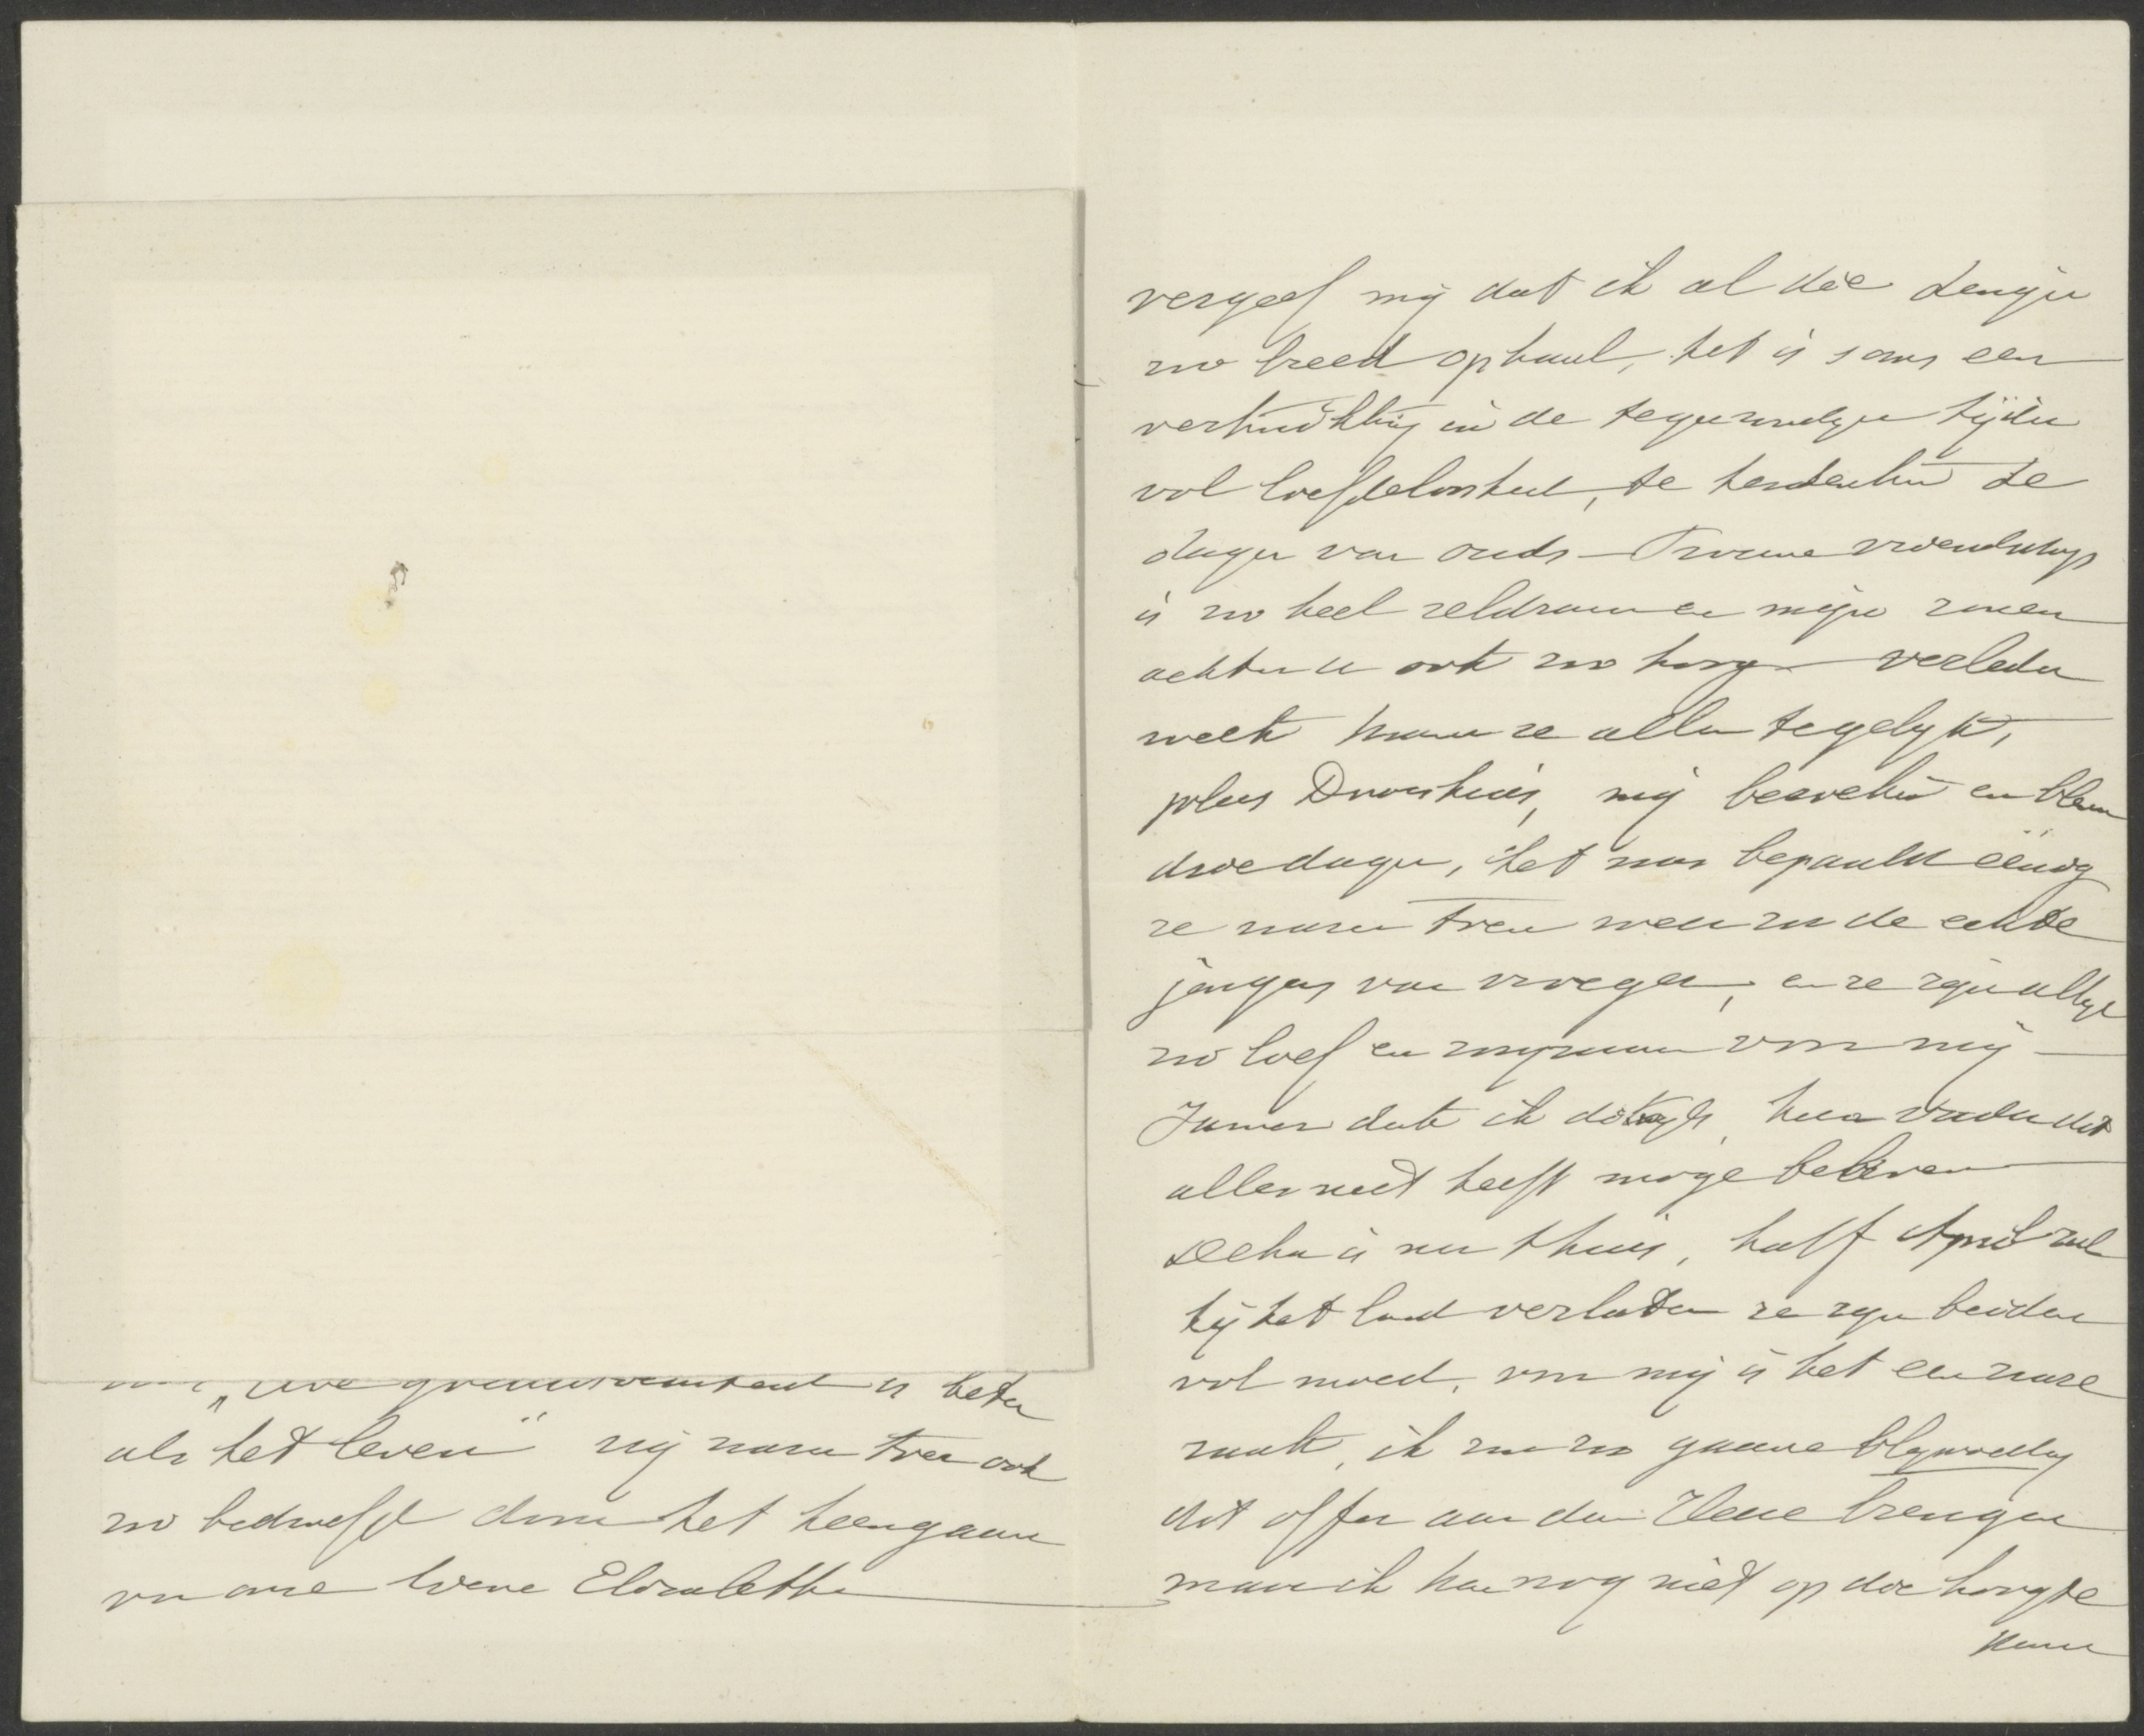 „Uwe goedertierenheid is beter
als het leven" wij waren toen ook
zoo bedroefd door het heengaan
van onze lieve Elizabeth
vergeef mij dat ik al die dingen
zoo breed ophaal, het is soms een
verkwikking in de tegenwoordige tijden
vol liefdeloosheid, te herdenken de
dagen van ouds — Trouwe vriendschap
is zoo heel zeldzaam en mijn zonen
achten u ook zoo hoog — verleden
week kwamen ze allen tegelijk,
plus Droushuis, mij bezoeken en bleven
drie dagen, het was bepaald éénig
ze waren toen weer zoo de echte
jongens van vroeger, en ze zijn altijd
zoo lief en zorgzaam voor mij —
Jammer denk ik dikwijls, hun vader dit
alles niet heeft mogen beleven
is nu thuis, half April zal
hij het land verlaten ze zijn beiden
vol moed, voor mij is het een zware
zaak, ik zou zoo gaarne blymoedig
dit offer aan den Heere brengen
maar ik kan nog niet op die hoogte
komen